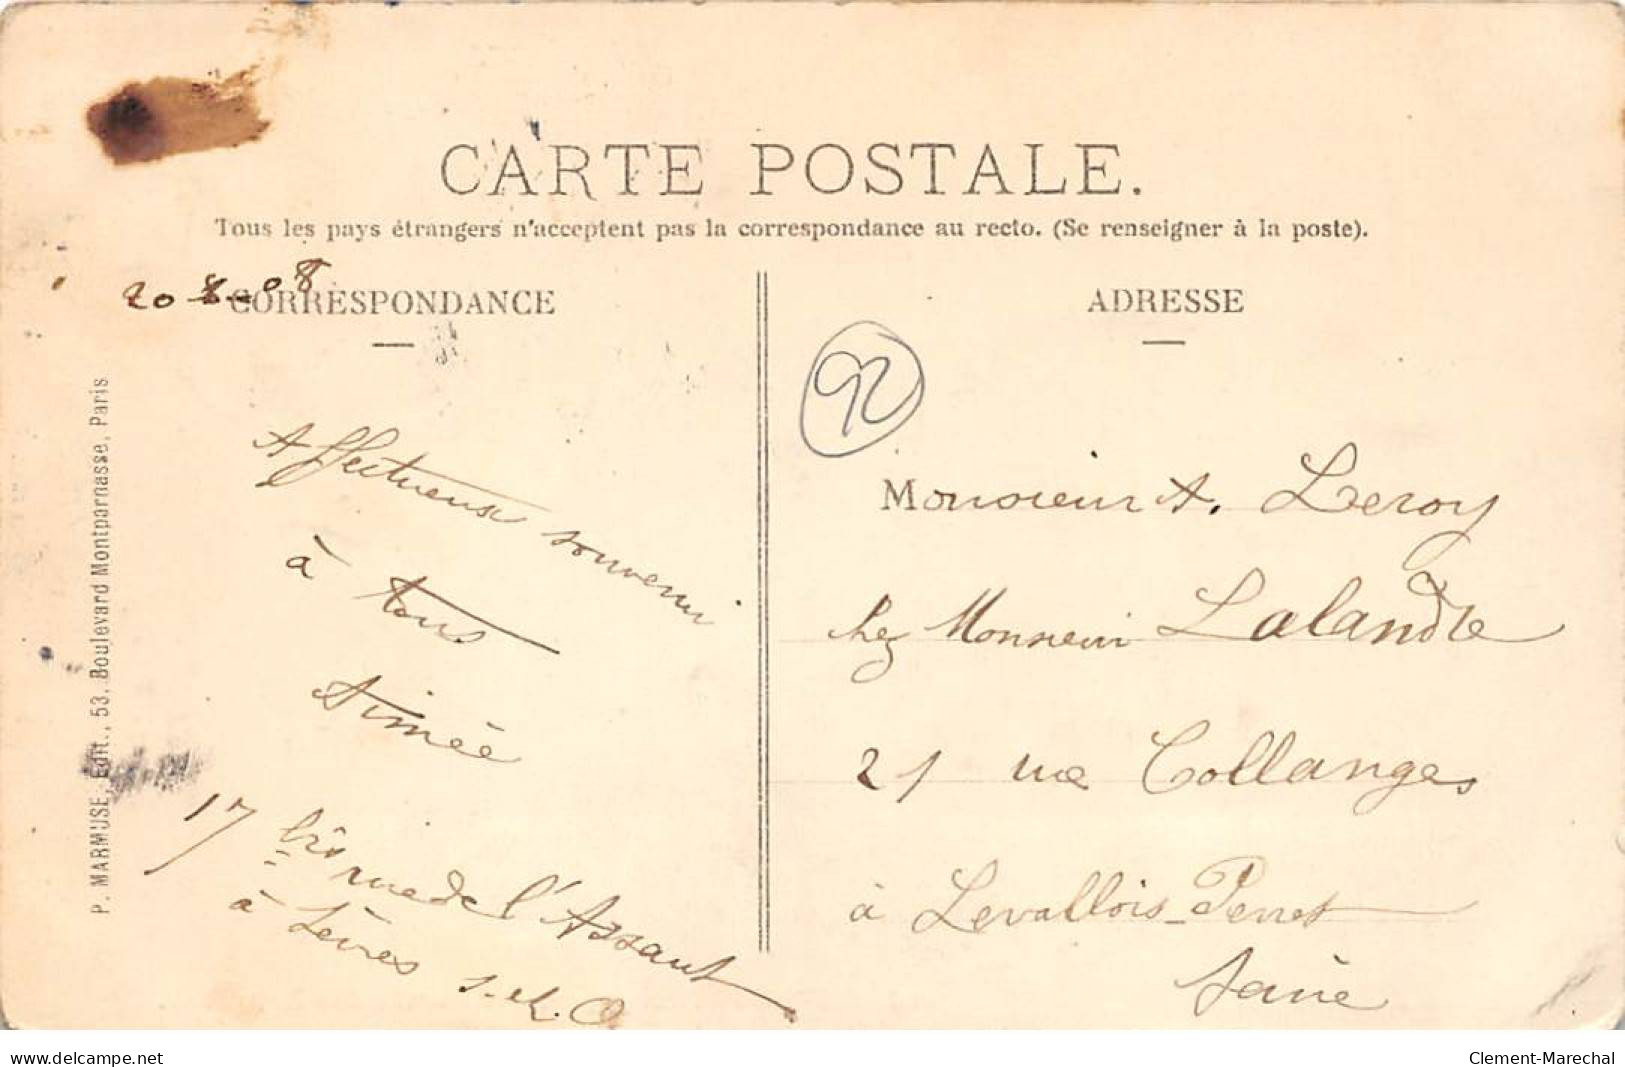 CARTE POSTALE.
Tous les pays étrangers n'acceptent pas la correspondance au recto. (Se renseigner à la poste).
20-8-08
CORRESPONDANCE
Affectueux souvenir
à tous
Aimée
17 bis rue de l'Assaut
à Sèvres S.-et-O
P. MARMUSE, Edit., 53, Boulevard Montparnasse, Paris
ADRESSE
92
Monsieur A. Leroy
chez Monsieur Lalande
21 rue Collanges
à Levallois-Perret
Seine
www.delcampe.net
Clement-Marechal